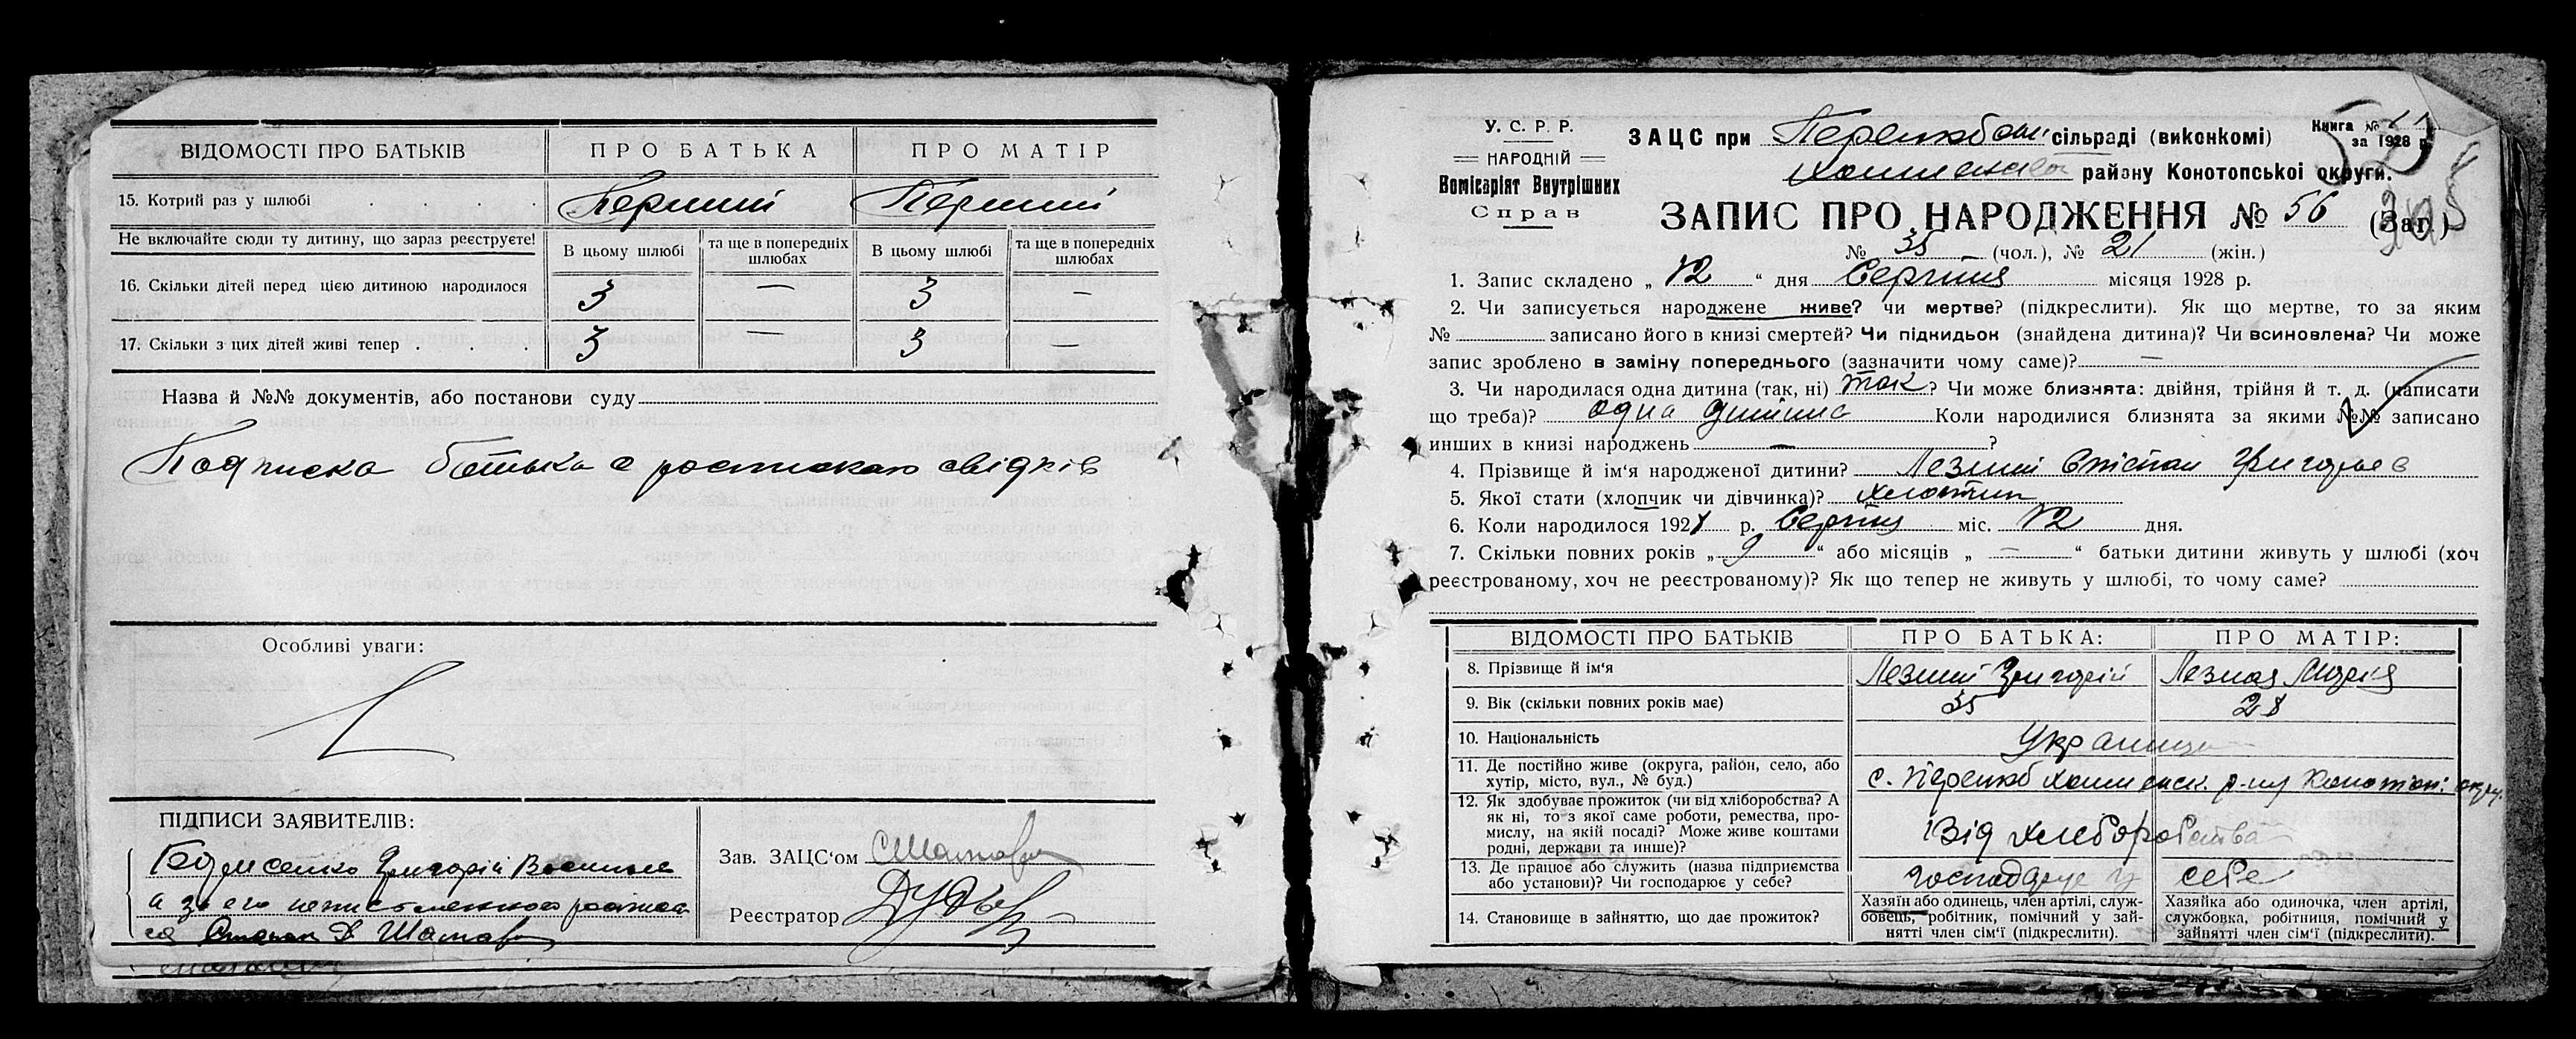 ВІДОМОСТІ ПРО БАТЬКІВ ПРО БАТЬКА ПРО МАТІР
15. Котрий раз у шлюбі . . . . Перший Перший
Не включайте сюди ту дитину, що зараз реєструєте! В цьому шлюбі та ще в попередніх шлюбах В цьому шлюбі та ще в попередніх шлюбах
16. Скільки дітей перед цією дитиною народилося 3 — 3 —
17. Скільки з цих дітей живі тепер . . . 3 — 3 —
Назва й №№ документів, або постанови суду
Подписка батька с роспискою свідків
Особливі уваги:
ПІДПИСИ ЗАЯВИТЕЛІВ:
Григорій
а за его
Зав. ЗАЦС'ом
Реєстратор
У. С. Р. Р.
НАРОДНІЙ
Комісаріят Внутрішних
Справ
ЗАЦС при сільраді (виконкомі)
району Конотопської округи.
Книга №
за 1928 р.
ЗАПИС ПРО НАРОДЖЕННЯ № 56 (Заг.)
№ 35 (чол.), № 21 (жін.)
1. Запис складено „ 12 “ дня Серпня місяця 1928 р.
2. Чи записується народжене живе? чи мертве? (підкреслити). Як що мертве, то за яким
№ записано його в книзі смертей? Чи підкидьок (знайдена дитина)? Чи всиновлена? Чи може
запис зроблено в заміну попереднього (зазначити чому саме)? —
3. Чи народилася одна дитина (так, ні) так? Чи може близнята: двійня, трійня й т. д. (написати
що треба)? одна дитина Коли народилися близнята за якими №№ записано
инших в книзі народжень — ?
4. Прізвище й ім'я народженої дитини? Лезний Степан Григорьев
5. Якої стати (хлопчик чи дівчинка)? хлопчик
6. Коли народилося 1928 р. Серпня міс. 12 дня.
7. Скільки повних років „ 9 “ або місяців „ — “ батьки дитини живуть у шлюбі (хоч
реєстрованому, хоч не реєстрованому)? Як що тепер не живуть у шлюбі, то чому саме?
ВІДОМОСТІ ПРО БАТЬКІВ ПРО БАТЬКА: ПРО МАТІР:
8. Прізвище й ім'я Лезний Григорій Лезная Марія
9. Вік (скільки повних років має) 35 28
10. Національність Українці
11. Де постійно живе (округа, район, село, або
хутір, місто, вул., № буд.) с. р-ну
12. Як здобуває прожиток (чи від хліборобства? А
як ні, то з якої саме роботи, ремества, про-
мислу, на якій посаді? Може живе коштами
родні, держави та инше)? Від хлеборобства
13. Де працює або служить (назва підприємства
або установи)? Чи господарює у себе? господарує у себе
14. Становище в зайняттю, що дає прожиток?
Хазяїн або одинець, член артілі, служ-
бовець, робітник, помічний у зай-
нятті член сім'ї (підкреслити).
Хазяйка або одиночка, член артілі,
службовка, робітниця, помічний у
зайнятті член сім'ї (підкреслити).